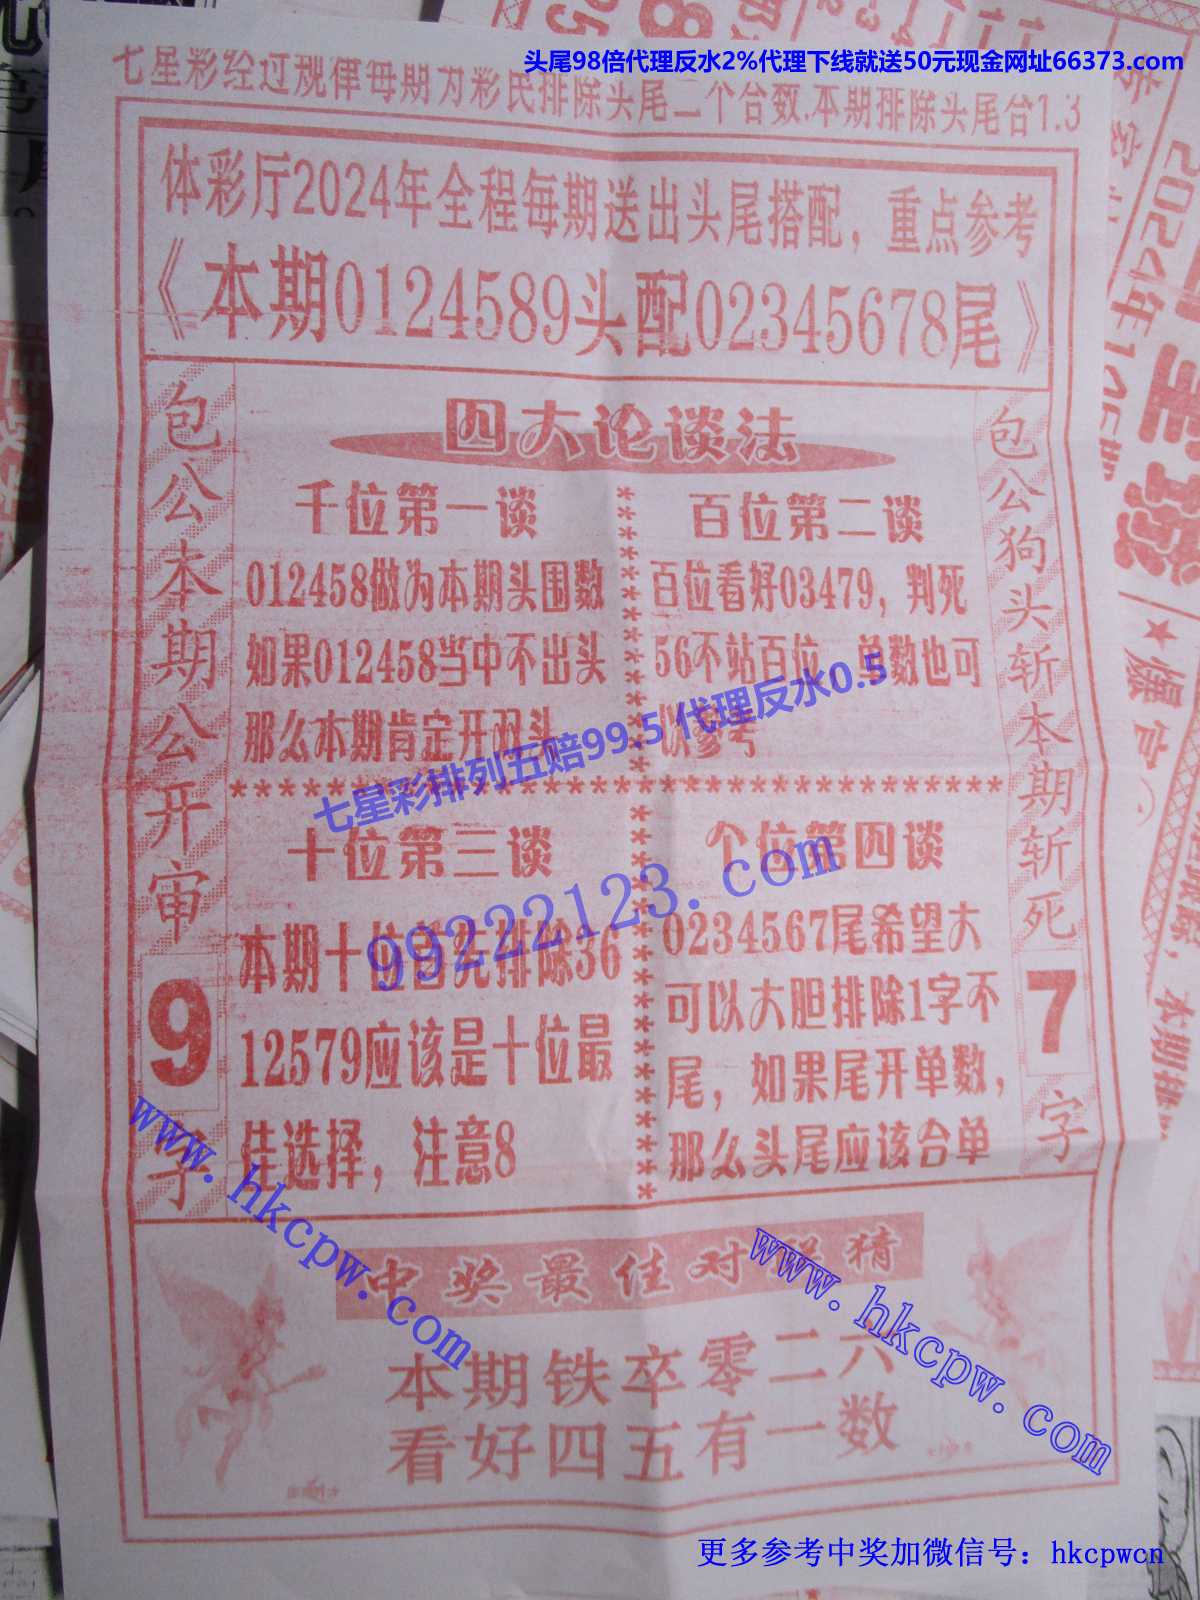 头尾98倍代理反水2%代理下线就送50元现金网址66373.com
七星彩经过规律每期为彩民排除头尾二个合数.本期排除头尾合1.3
体彩厅2024年全程每期送出头尾搭配，重点参考
《本期0124589头配02345678尾》
包公本期公开审
9
字
四大论谈法
千位第一谈
012458做为本期头围数
如果012458当中不出头
那么本期肯定开双头
百位第二谈
百位看好03479，判死
56不站百位，单数也可
以参考
七星彩排列五赔99.5 代理反水0.5
十位第三谈
本期十位首先排除36
12579应该是十位最
佳选择，注意8
99222123.com
个位第四谈
0234567尾希望大
可以大胆排除1字不
尾，如果尾开单数，
那么头尾应该合单
包公狗头斩本期斩死
7
字
www.hkcpw.com
www.hkcpw.com
中奖最佳对
猜
本期铁卒零二六
看好四五有一数
更多参考中奖加微信号：hkcpwcn
2024年
★爆
本期排